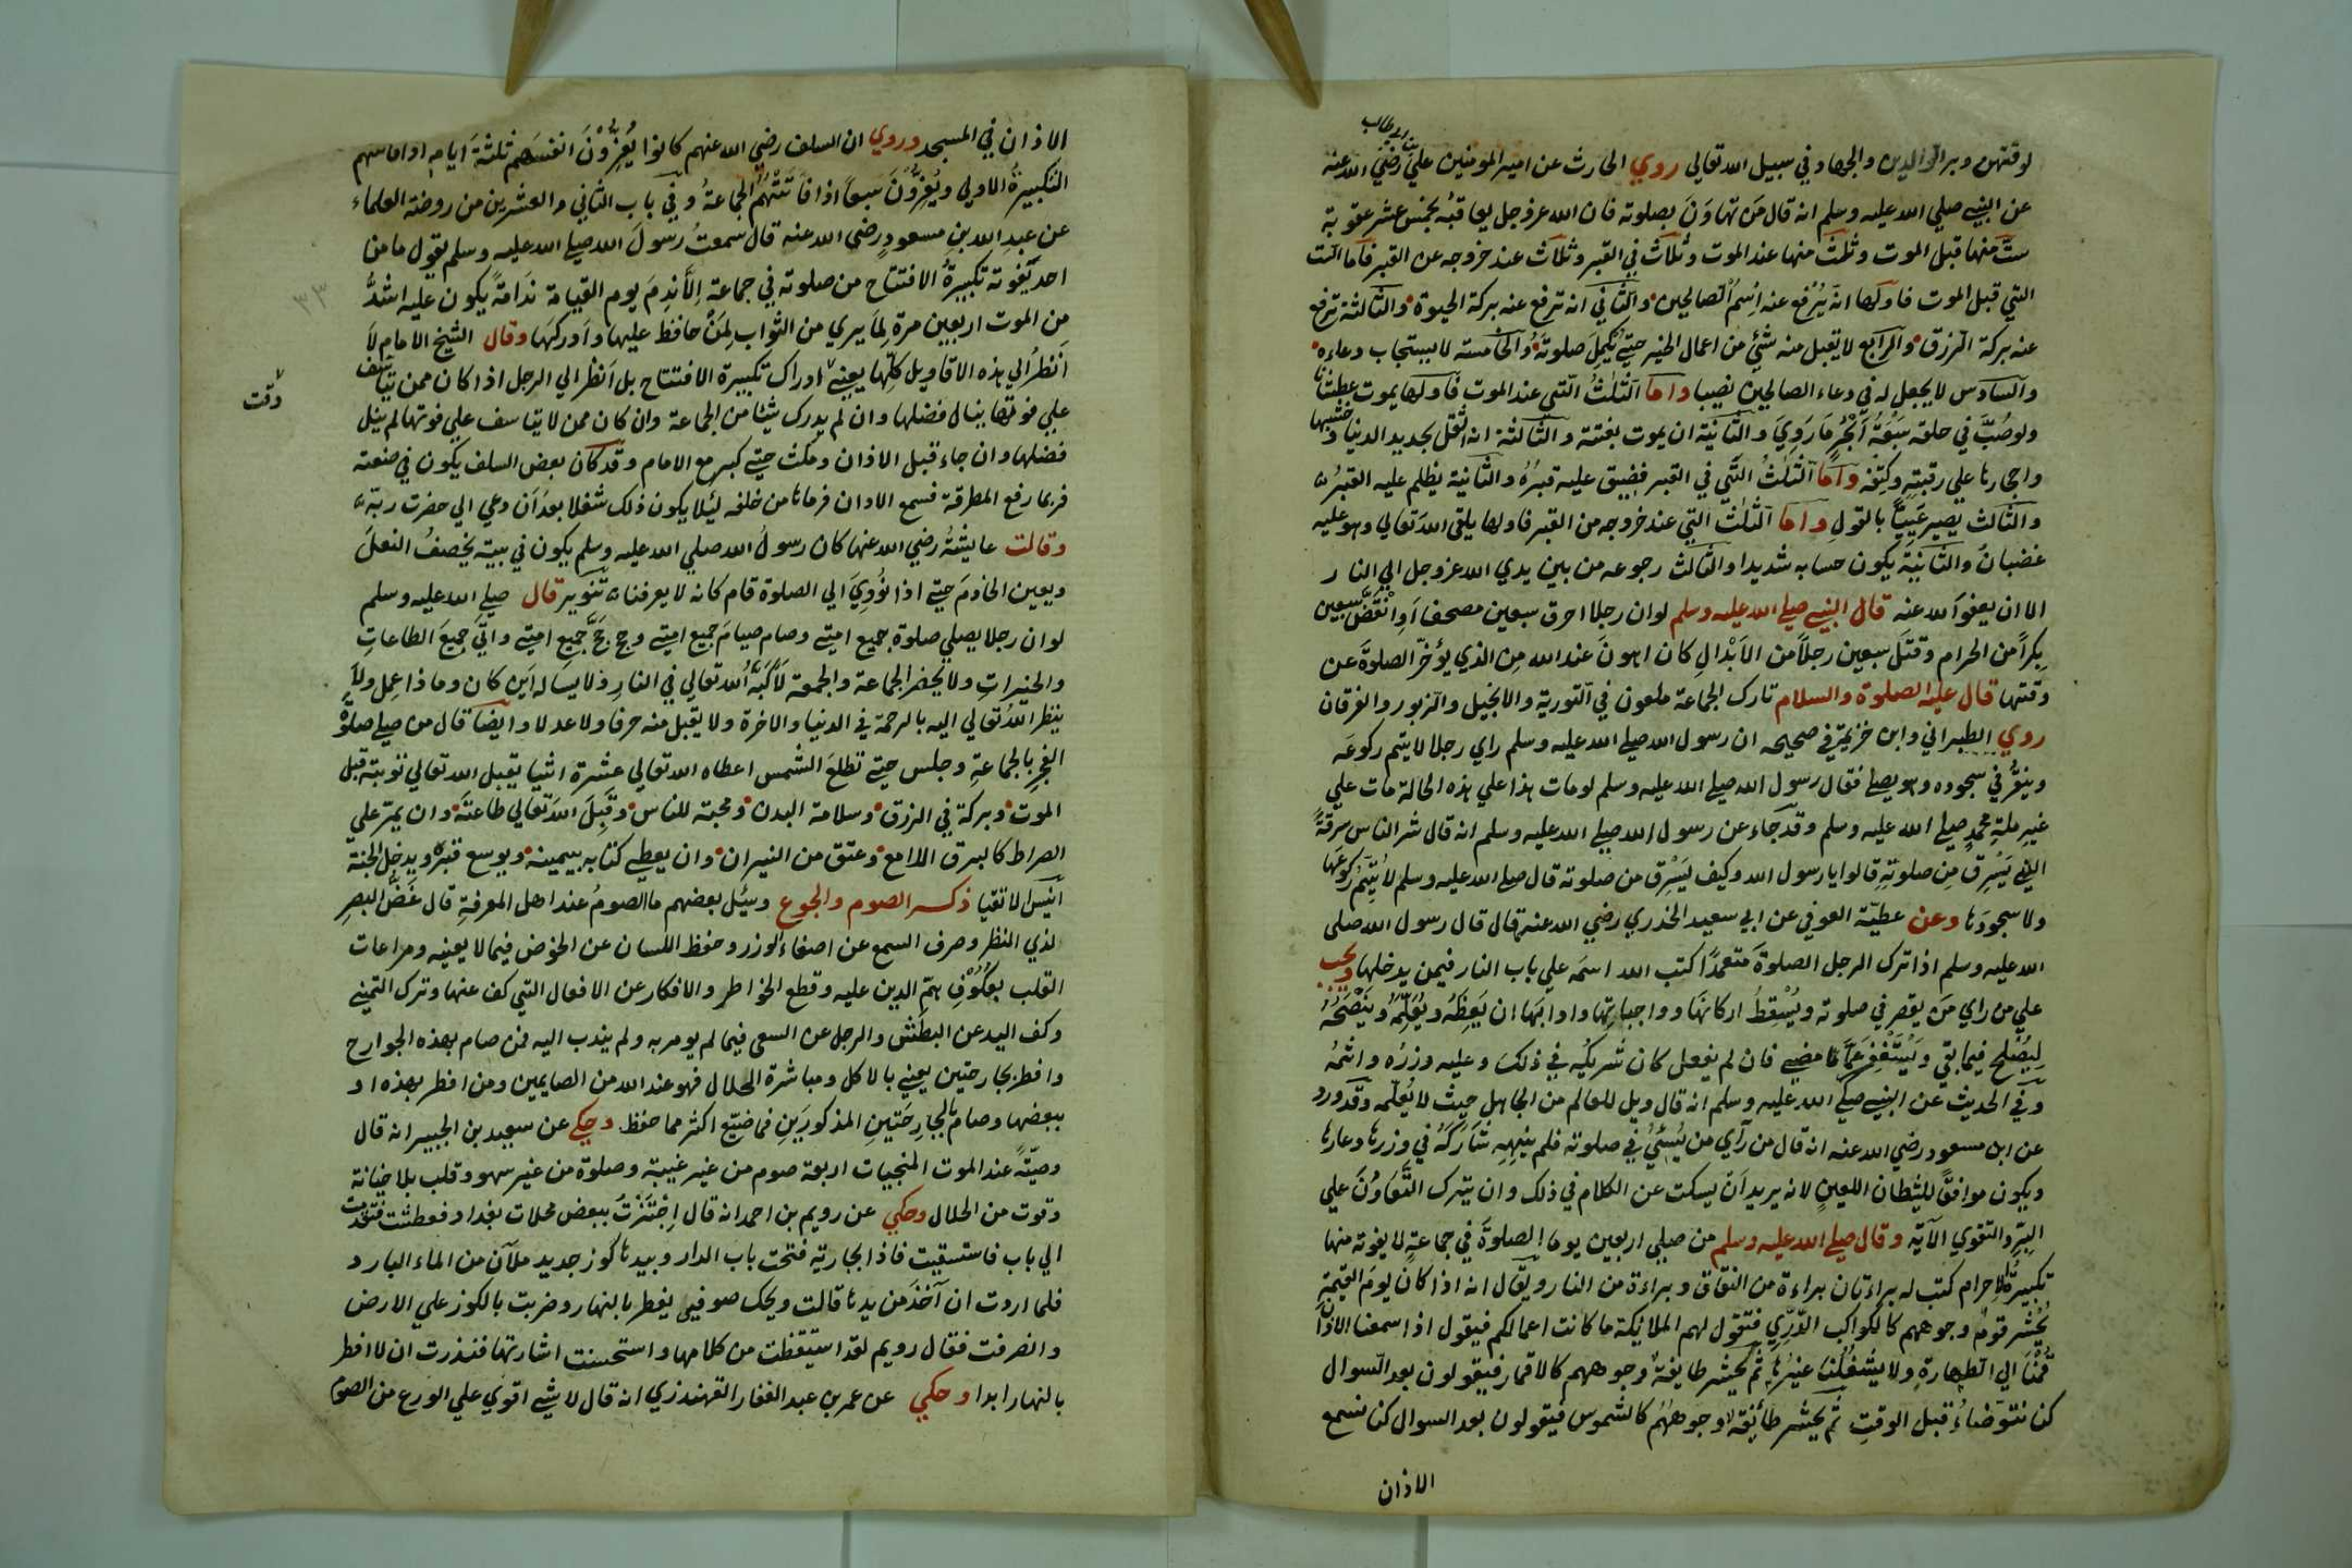 بن ابي طالب
لوقتهن وبر الوالدين والجهاد في سبيل الله تعالي روي الحارث عن امير المومنين علي رضي الله عنه
عن النبي صلي الله عليه وسلم انه قال من تهاون بصلوته فان الله عز وجل يعاقبه بخمس عشر عقوبة
ست منها قبل الموت وثلث منها عند الموت وثلاث في القبر وثلاث عند خروجه عن القبر فاما الست
التي قبل الموت فاولها انه يرفع عنه اسم الصالحين والثاني انه ترفع عنه بركة الحيوة والثالثة ترفع
عنه بركة الرزق والرابع لا يقبل منه شئ من اعمال الخير حتي يكمل صلوته والخامسة لا يستجاب دعاءه
والسادس لا يجعل له في دعاء الصالحين نصيبا واما الثلث التي عند الموت فاولها يموت عطشانا
ولو صب في حلقه سبعة ابحر ما روي والثانية ان يموت بغتة والثالثة انه اثقل بحديد الدنيا وخشبها
واحجارها علي رقبته وكتفه واما الثلث التي في القبر فضيق عليه قبره والثانية يظلم عليه القبر
والثالث يصير عييا بالقول واما الثلث التي عند خروجه من القبر فاولها يلقي الله تعالي وهو عليه
غضبان والثانية يكون حسابه شديدا والثالث رجوعه من بين يدي الله عز وجل الي النار
الا ان يعفو الله عنه قال النبي صلي الله عليه وسلم لو ان رجلا احرق سبعين مصحفا او انقض سبعين
بكرا من الحرام وقتل سبعين رجلا من الابدال كان اهون عند الله من الذي يؤخر الصلوة عن
وقتها قال عليه الصلوة والسلام تارك الجماعة ملعون في التورية والانجيل والزبور والفرقان
روي الطبراني وابن خزيمة في صحيحه ان رسول الله صلي الله عليه وسلم راي رجلا لا يتم ركوعه
وينقر في سجوده وهو يصلي فقال رسول الله صلي الله عليه وسلم لو مات هذا علي هذه الحالة مات علي
غير ملة محمد صلي الله عليه وسلم وقد جاء عن رسول الله صلي الله عليه وسلم انه قال شر الناس سرقة
الذي يسرق من صلوته قالوا يا رسول الله وكيف يسرق من صلوته قال صلي الله عليه وسلم لا يتم ركوعها
ولا سجودها وعن عطية العوفي عن ابي سعيد الخدري رضي الله عنه قال قال رسول الله صلي
الله عليه وسلم اذا ترك الرجل الصلوة متعمدا كتب الله اسمه علي باب النار فيمن يدخلها ويجب
علي من راي من يقصر في صلوته ويسقط اركانها وواجباتها وادابها ان يعظه ويعلمه وينصحه
ليصلح فيما بقي ويستغفر عما مضي فان لم يفعل كان شريكه في ذلك وعليه وزره واثمه
وفي الحديث عن النبي صلي الله عليه وسلم انه قال ويل للعالم من الجاهل حيث لا يعلمه وقد ورد
عن ابن مسعود رضي الله عنه انه قال من رآي من يسئ في صلوته فلم ينهه شاركه في وزرها وعارها
ويكون موافقا للشيطان اللعين لانه يريد ان يسكت عن الكلام في ذلك وان يترك التعاون علي
البر والتقوي الآية وقال صلي الله عليه وسلم من صلي اربعين يوما الصلوة في جماعة لا يفوته منها
تكبيرة الاحرام كتب له براءتان براءة من النفاق وبراءة من النار ويقال انه اذا كان يوم القيمة
يحشر قوم وجوههم كالكواكب الدري فتقول لهم الملائكة ما كانت اعمالكم فيقول اذا سمعنا الاذان
قمنا الي الطهارة ولا يشغلنا غيرها ثم يحشر طايفة وجوههم كالاقمار فيقولون بعد السوال
كنا نتوضاء قبل الوقت ثم يحشر طائفة وجوههم كالشموس فيقولون بعد السوال كنا نسمع
الاذان
الاذان في المسجد وروي ان السلف رضي الله عنهم كانوا يعزون انفسهم ثلثة ايام اذا فاتهم
التكبيرة الاولي ويعزون سبعا اذا فاتتهم الجماعة وفي باب الثاني والعشرين من روضة العلماء
عن عبد الله بن مسعود رضي الله عنه قال سمعت رسول الله صلي الله عليه وسلم يقول ما منا
احد يفوته تكبيرة الافتتاح من صلوته في جماعة الا ندم يوم القيامة ندامة يكون عليه اشد
من الموت اربعين مرة لما يري من الثواب لمن حافظ عليها وادركها وقال الشيخ الامام لا
انظر الي هذه الاقاويل كلها يعني ادراك تكبيرة الافتتاح بل انظر الي الرجل اذا كان ممن يتاسف
علي فوتها ينال فضلها وان لم يدرك شيئا من الجماعة وان كان ممن لا يتاسف علي فوتها لم ينل
فضلها وان جاء قبل الاذان ومكث حتي كبر مع الامام وقد كان بعض السلف يكون في صنعته
فربما رفع المطرقة فسمع الاذان فرماها من خلفه لئلا يكون ذلك شغلا بعد ان دعي الي حضرت ربه
وقالت عايشة رضي الله عنها كان رسول الله صلي الله عليه وسلم يكون في بيته يخصف النعل
ويعين الخادم حتي اذا نودي الي الصلوة قام كانه لا يعرفنا تنوير قال صلي الله عليه وسلم
لو ان رجلا يصلي صلوة جميع امتي وصام صيام جميع امتي وحج حج جميع امتي واتي جميع الطاعات
والخيرات ولا يحضر الجماعة والجمعة لأكبه الله تعالي في النار ولا يساله اين كان وماذا عمل ولا
ينظر الله تعالي اليه بالرحمة في الدنيا والاخرة ولا يقبل منه صرفا ولا عدلا وايضا قال من صلي صلوة
الفجر بالجماعة وجلس حتي تطلع الشمس اعطاه الله تعالي عشرة اشيا يقبل الله تعالي توبته قبل
الموت وبركة في الرزق وسلامة البدن ومحبة للناس وقبل الله تعالي طاعته وان يمر علي
الصراط كالبرق اللامع وعتق من النيران وان يعطي كتابه بيمينه ويوسع قبره ويدخل الجنة
انيس الاتقيا ذكر الصوم والجوع وسئل بعضهم ما الصوم عند اهل المعرفة قال غض البصر
لذي النظر وصرف السمع عن اصغاء الوزر وحفظ اللسان عن الخوض فيما لا يعنيه ومراعات
القلب بعكوف هم الدين عليه وقطع الخواطر والافكار عن الافعال التي كف عنها وترك التمني
وكف اليد عن البطش والرجل عن السعي فيما لم يومر به ولم يندب اليه فمن صام بهذه الجوارح
وافطر بجارحتين يعني بالاكل ومباشرة الحلال فهو عند الله من الصايمين ومن افطر بهذه او
ببعضها وصام بالجارحتين المذكورين فما ضيع اكثر مما حفظ وحكي عن سعيد بن الجبير انه قال
وصية عند الموت المنجيات اربعة صوم من غير غيبة وصلوة من غير سهو وقلب بلا خيانة
وقوت من الحلال وحكي عن رويم بن احمد انه قال اجتزت ببعض محلات بغداد فعطشت فتقدمت
الي باب فاستسقيت فاذا بجارية فتحت باب الدار وبيدها كوز جديد ملآن من الماء البارد
فلما اردت ان آخذ من يدها قالت ويحك صوفي يفطر بالنهار وضربت بالكوز علي الارض
وانصرفت فقال رويم لقد استيقظت من كلامها واستحسنت اشارتها فنذرت ان لا افطر
بالنهار ابدا وحكي عن عمر بن عبد الغفار القهندزي انه قال لا شي اقوي علي الورع من الصوم
وقت
٣٣